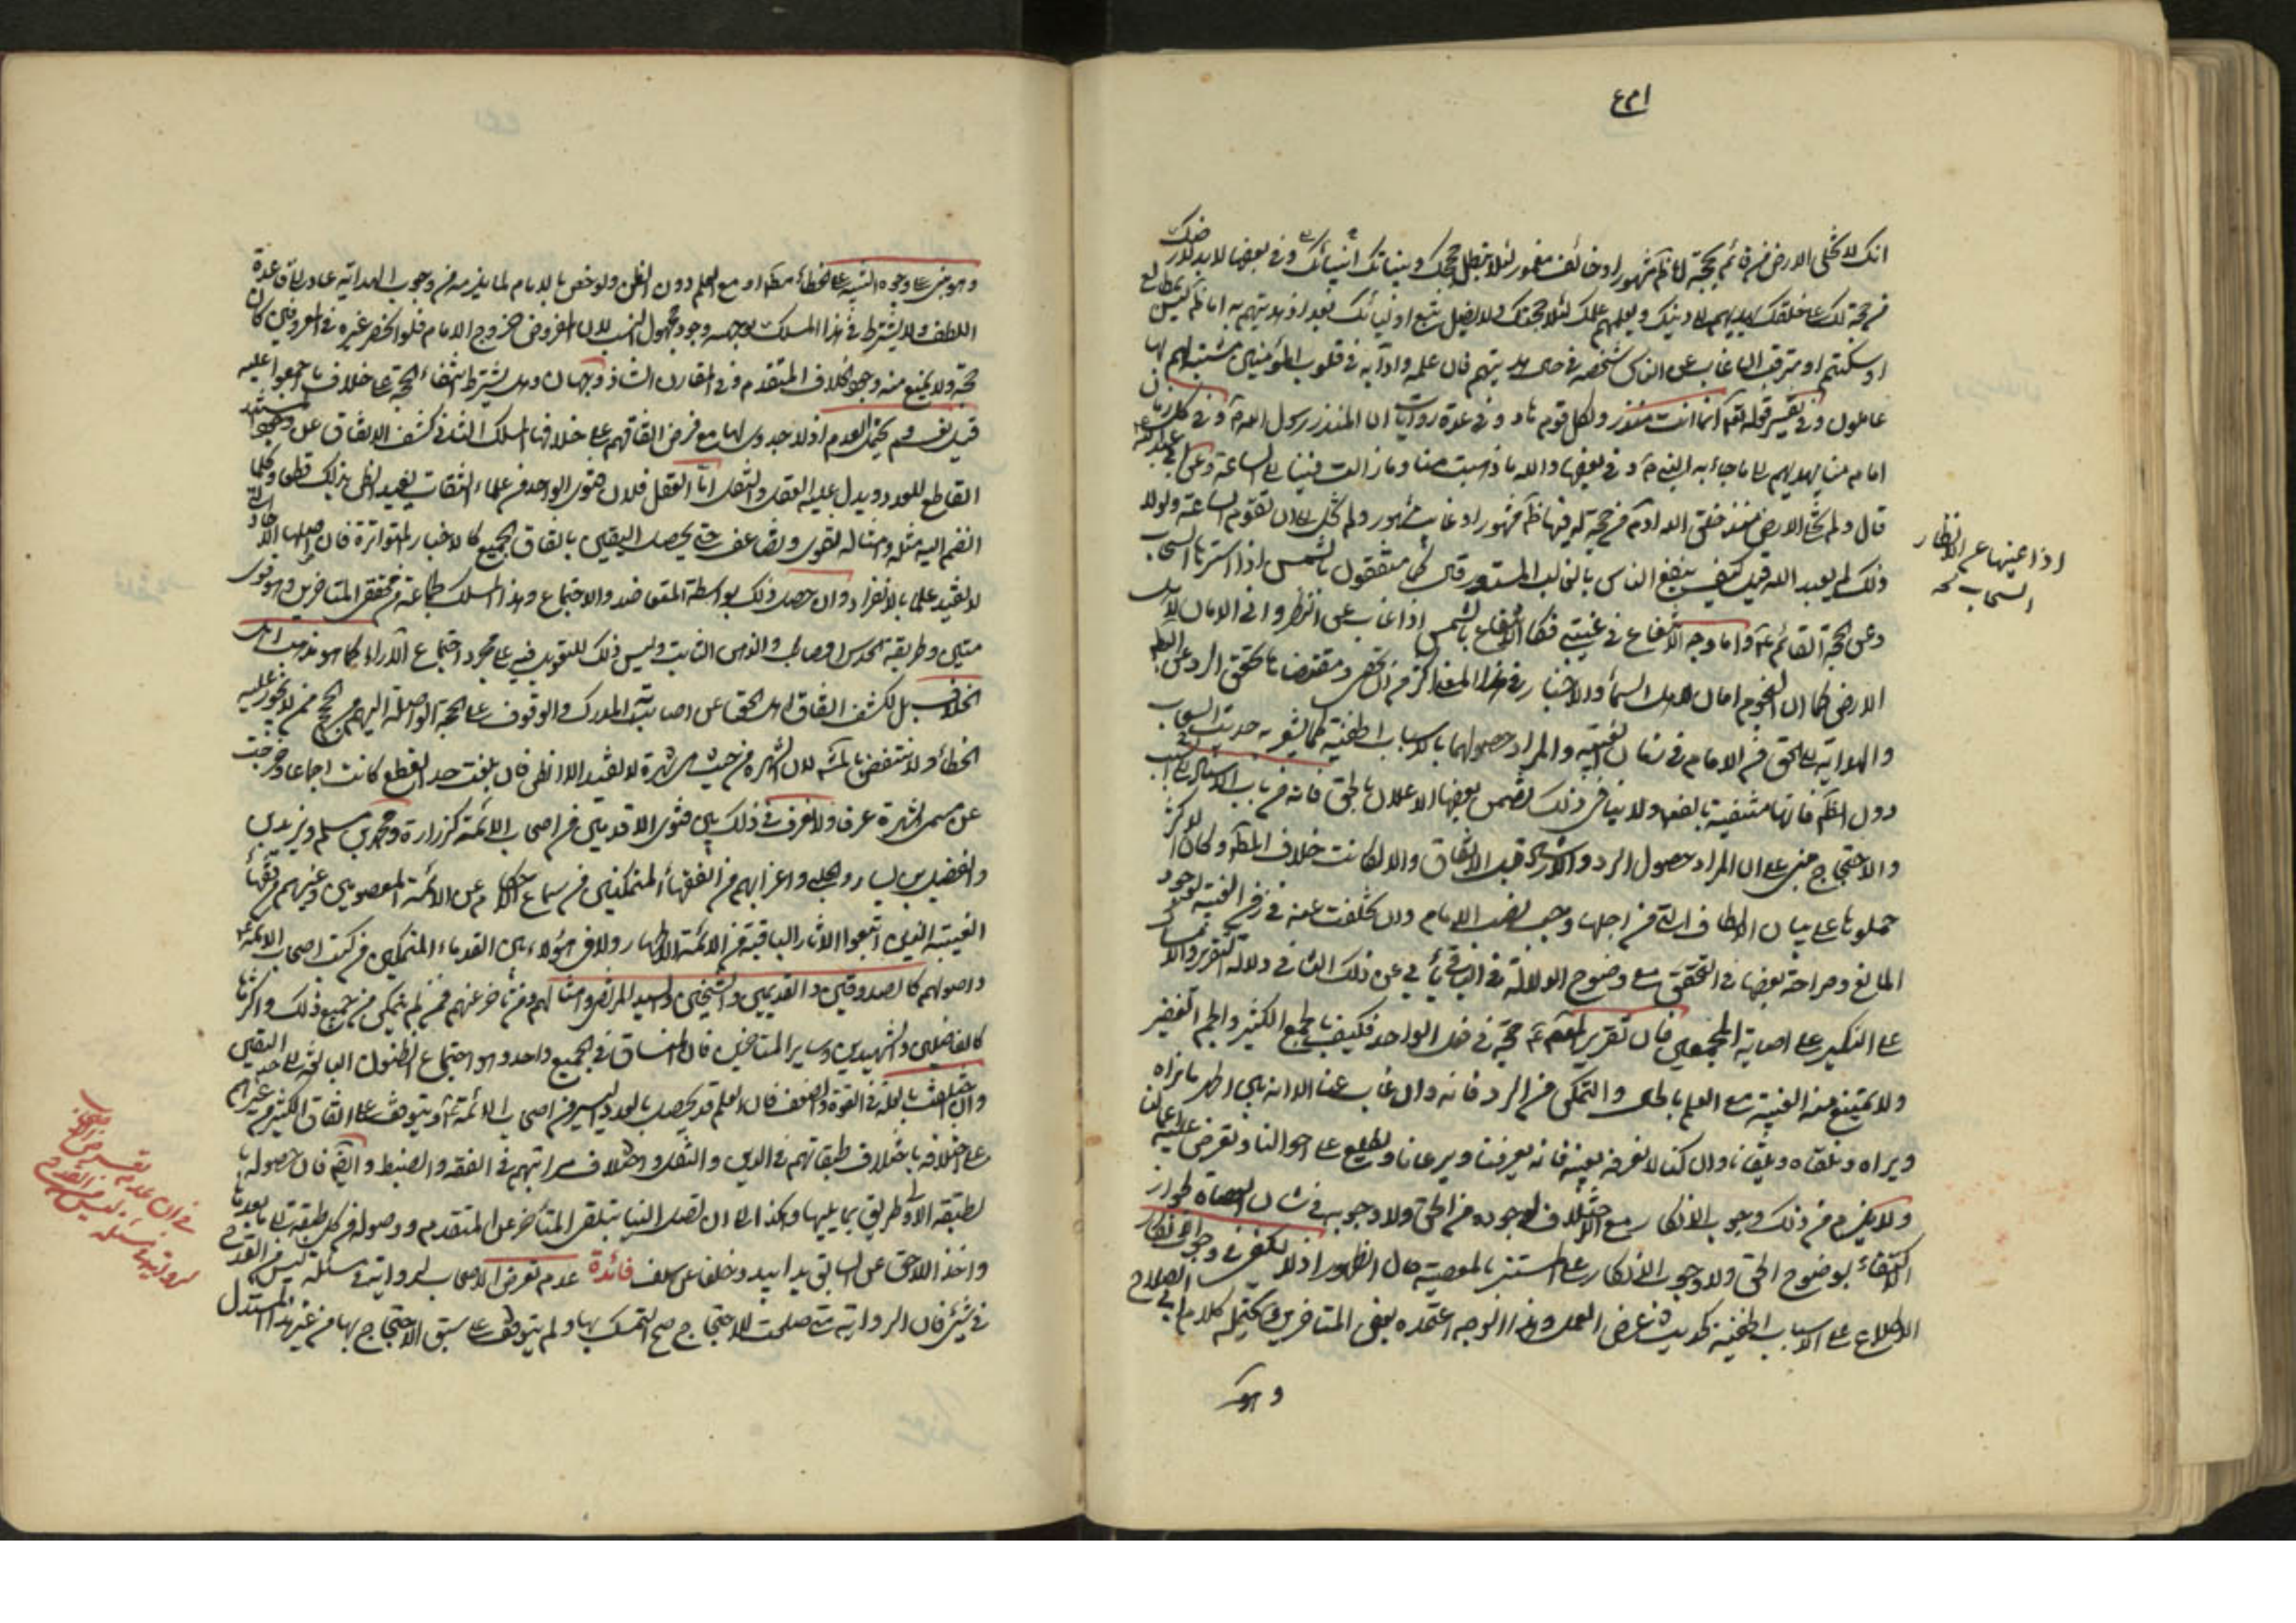 انك لا تخلى الارض من قائم بحجة اما ظاهر مشهور او خائف مغمور لئلا تبطل حججك وبيناتك وفي بعضها لا بد لارضك
من حجة لك على خلقك يهديهم الى دينك ويعلمهم علمك لئلا تبطل حجتك ولا يضل تتبع اوليائك بعد اذ هديتهم به اما ظاهر ليس بالمطاع
او مكتتم او مترقب ان غاب عن الناس شخصه في حال هدايتهم فان علمه وآدابه في قلوب المؤمنين مثبتة فهم بها
عاملون وفي تفسير قوله تعالى انما انت منذر ولكل قوم هاد وفي عدة روايات ان المنذر رسول الله وفي كل زمان
امام منا يهديهم الى ما جاء به النبي وفي بعضها والله ما ذهبت منا وما زالت فينا الى الساعة وعن ابي عبد الله
قال ولم تخل الارض منذ خلق الله آدم من حجة لله فيها ظاهر مشهور او غائب مستور ولم تخل الى ان تقوم الساعة ولولا
ذلك لم يعبد الله قيل كيف ينتفع الناس بالغائب المستور قال كما ينتفعون بالشمس اذا سترها السحاب
وعن الحجة القائم واما وجه الانتفاع في غيبتي فكالانتفاع بالشمس اذا غاب عن انظار واني لامان لاهل
الارض كما ان النجوم امان لاهل السماء والاخبار في هذا المعنى اكثر من ان تحصى ومقتضاها تحقق الردع عن الباطل
والهداية الى الحق من الامام في زمان الغيبة والمراد حصولهما بالاسباب الخفية كما يشعر به حديث السحاب
دون الظاهرة فانها منتفية بالضرورة ولا ينافي ذلك تضمن بعضها الاعلان بالحق فانه من باب
والاحتجاج مبني على ان المراد حصول الرد والارشاد قبل الاتفاق والا لكانت خلاف الظاهر وكان الاكثر
حملوها على بيان الالطاف التي من اجلها وجب نصب الامام وان تخلفت عنه في زمن الغيبة لوجود
المانع وصراحة بعضها في التحقق مع وضوح الدلالة في الباقي يأبى عن ذلك الثاني دلالة التقرير والامساك
على النكير على اصابة المجمعين فان تقرير المعصوم حجة في فعل الواحد فكيف بالجمع الكثير والجم الغفير
ولا يمتنع منه الغيبة مع العلم بالحال والتمكن من الرد فانه وان غاب عنا الا انه بين اظهرنا نراه
ويرانا ونلقاه ويلقانا وان كنا لا نعرفه بعينه فانه يعرفنا ويرعانا ويطلع على احوالنا وتعرض عليه اعمالنا
ولا يلزم من ذلك وجوب الانكار مع الاختلاف لوجوده من الحق ولا وجوبه في شأن العصاة لجواز
الاكتفاء بوضوح الحق ولا وجوب الانكار على المستتر بالمعصية حال الظهور اذ لا يكفي في وجوب الانكار
الاطلاع على الاسباب الخفية كحديث عرض العمل وهذا الوجه اعتمده بعض المتأخرين ويحتمله كلام ابي الصلاح
وهو
اذا غيبها عن الانظار
السحاب نخه
وهو مبني على وجوه التنبيه على الخطأ مطلقا او مع العلم دون الظن ولو خص بالامام لما يلزمه من وجوب الهداية عاد الى قاعدة
اللطف ولا يشترط في هذا المسلك بوجهيه وجود مجهول النسب لان المفروض خروج الامام فلو انحصر غيره في المعروفين كان
حجة ولا يمنع منه وجود الخلاف المتقدم وفي المقارن الشاذ وجهان وهل يشترط انتفاء الحجة على خلاف ما اجمعوا عليه
قيل نعم ويحتمل العدم اذ لا جدوى لها مع فرض اتفاقهم على خلافها المسلك الثالث كشف الاتفاق عن
القاطع للعدد ويدل عليه العقل والنقل اما العقل فلان فتوى الواحد من علماء الثقات يفيد الظن بذلك قطعا وكلما
انضم اليه مثله وامثاله تقوى وتضاعف حتى يحصل اليقين باتفاق الجميع كالاخبار المتواترة فان اصلها الآحاد التي
لا تفيد علما بالانفراد وان حصل ذلك بواسطة التعاضد والاجتماع وهذا المسلك لجماعة من محققي المتأخرين وهو قوي
متين وطريقة الحدس الصائب والذهن الثابت وليس ذلك للتعويل فيه على مجرد اجتماع الآراء كما هو مذهب اهل
الخلاف بل لكشف اتفاق اهل الحق عن اصابة المدرك والوقوف على الحجة الواصلة اليهم من الحجج ممن لا يجوز عليه
الخطاء ولا ينتقض بالشهرة لان الشهرة من حيث هي شهرة لا تفيد الا الظن فان بلغت حد القطع كانت اجماعا وخرجت
عن مسمى الشهرة عرفا ولا فرق في ذلك بين فتوى الاقدمين من اصحاب الائمة كزرارة ومحمد بن مسلم وبريد بن
والفضيل بن يسار والحلبي واضرابهم من الفقهاء المتمكنين من سماع الاحكام عن الائمة المعصومين وغيرهم من فقهاء
الغيبة الذين اتبعوا الآثار الباقية من الائمة الاطهار ولا في هؤلاء بين القدماء المتمكنين من كتب اصحاب الائمة
واصولهم كالصدوقين والقديمين والشيخين والسيد المرتضى وامثالهم ومن تأخر عنهم ممن لم يتمكن من جميع ذلك او اكثرها
كالفاضلين والشهيدين وساير المتأخرين فان المساق في الجميع واحد وهو اجتماع الظنون البالغة الى حد اليقين
وان اختلفت بالعلة في القوة والضعف فان العلم قد يحصل بالعدد اليسير من اصحاب الائمة ويتوقف على اتفاق الكثير من غيرهم
على اختلافه باختلاف طبقاتهم في الدين والنقل واختلاف مراتبهم في الفقه والضبط وايضا فان حصوله بالطبقة
الاولى طريق بما يليها وهكذا الى ان تصل الينا بتلقي المتأخر عن المتقدم ووصوله من كل طبقة الى ما بعدها
واخذ اللاحق عن السابق يدا بيد وخلفا عن سلف فائدة عدم تعرض الاصحاب لرواية في مسئلة ليس من القدح
في شئ فان الرواية متى صلحت للاحتجاج صح التمسك بها ولم يتوقف على سبق الاحتجاج بها من غير هذا المستدل
في ان عدم تعرض الاصحاب
لرواية في مسئلة ليس من القدح